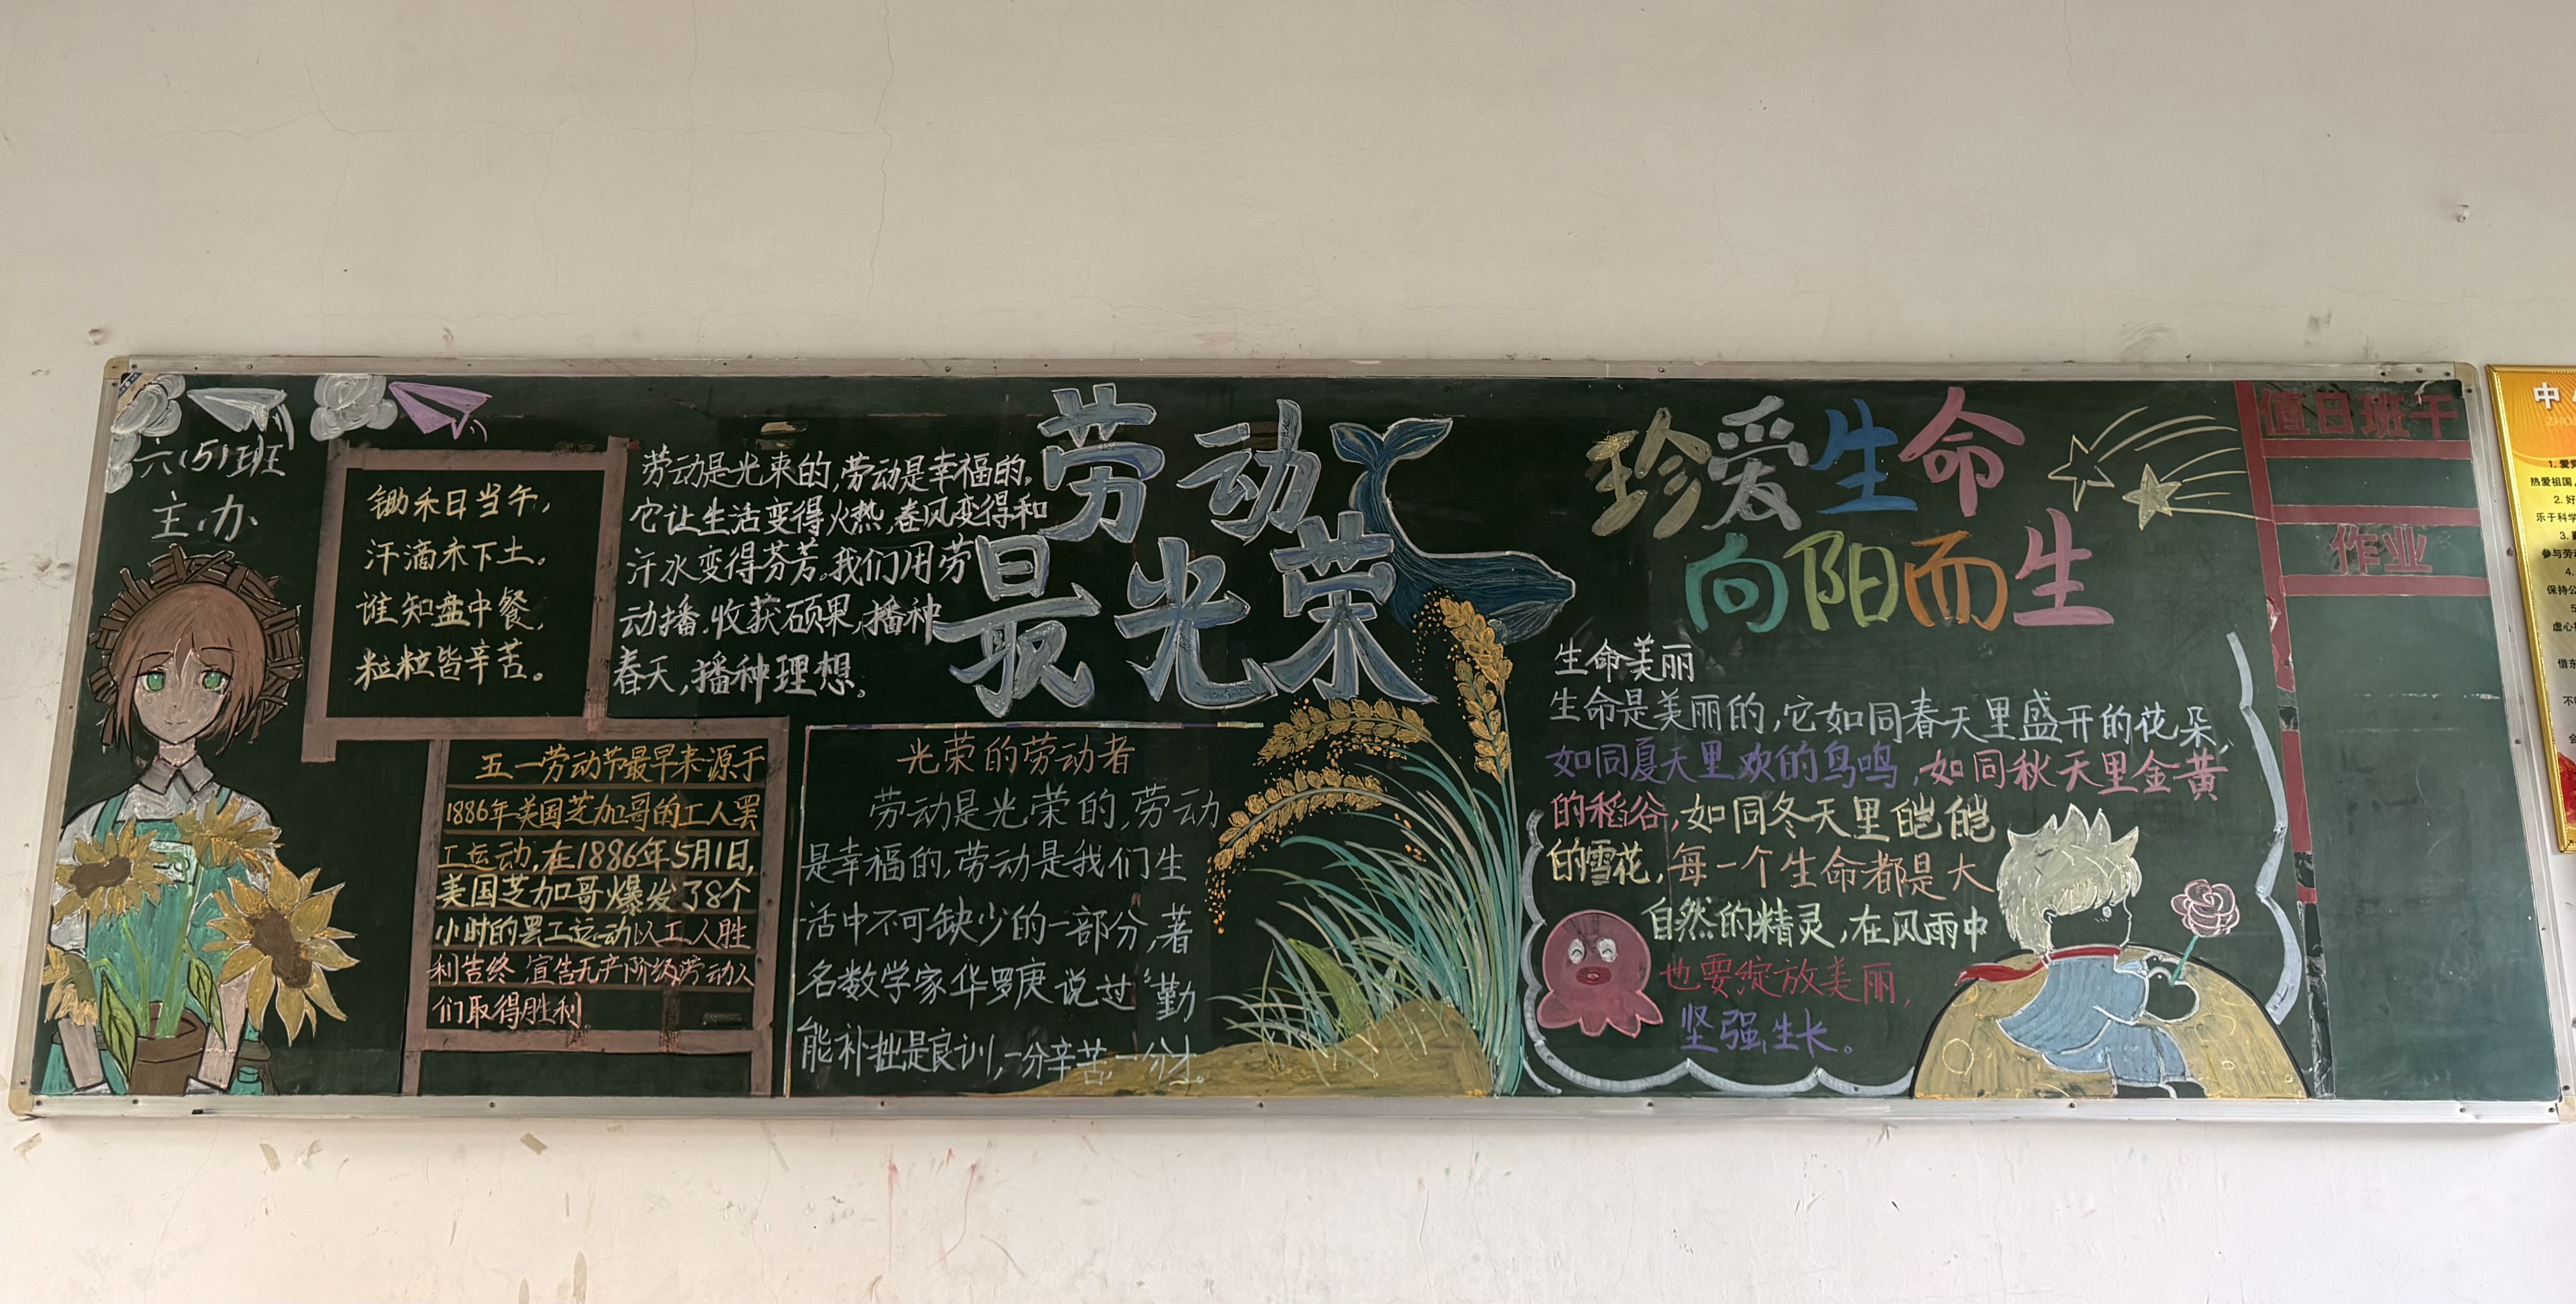 六(5)班
主办
锄禾日当午,
汗滴禾下土。
谁知盘中餐,
粒粒皆辛苦。
五一劳动节最早来源于
1886年美国芝加哥的工人罢
工运动,在1886年5月1日,
美国芝加哥爆发了8个
小时的罢工运动以工人胜
利告终,宣告无产阶级劳动人
们取得胜利.
劳动是光束的,劳动是幸福的,
它让生活变得火热,春风变得和
汗水变得芬芳。我们用劳
动播,收获硕果,播种
春天,播种理想。
劳动
最光荣
光荣的劳动者
劳动是光荣的,劳动
是幸福的,劳动是我们生
活中不可缺少的一部分,著
名数学家华罗庚说过“勤
能补拙是良训,一分辛苦一分才。
珍爱生命
向阳而生
生命美丽
生命是美丽的,它如同春天里盛开的花朵,
如同夏天里欢的鸟鸣,如同秋天里金黄
的稻谷,如同冬天里皑皑
白雪花,每一个生命都是大
自然的精灵,在风雨中
也要绽放美丽,
坚强生长。
值日班干
作业
中
1. 爱
热爱祖国,
2. 好
乐于科学
3.
参与劳
4.
保持公
5
虚心
借东
不
会